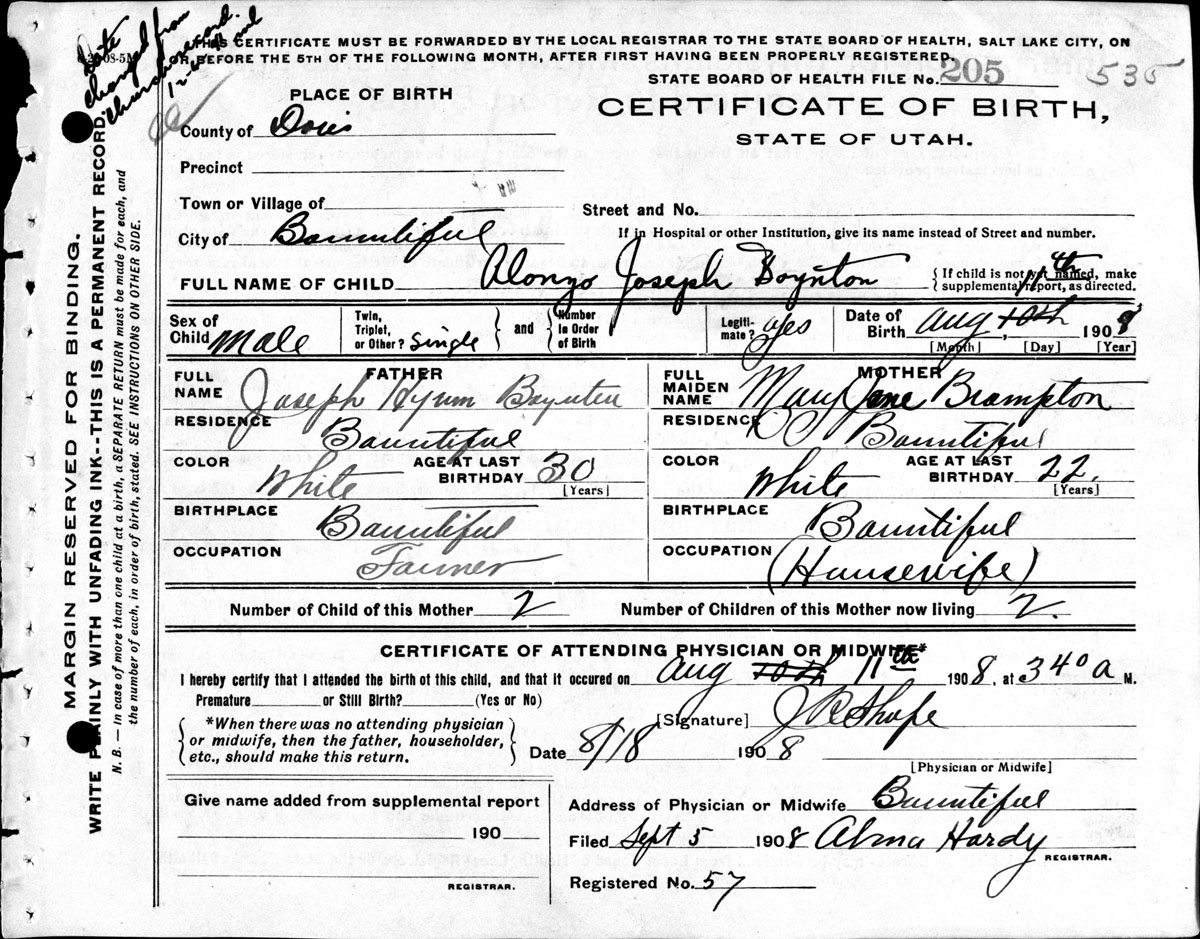 Date
changed from
Church record.
THIS CERTIFICATE MUST BE FORWARDED BY THE LOCAL REGISTRAR TO THE STATE BOARD OF HEALTH, SALT LAKE CITY, ON
OR BEFORE THE 5TH OF THE FOLLOWING MONTH, AFTER FIRST HAVING BEEN PROPERLY REGISTERED.
STATE BOARD OF HEALTH FILE No. 205 535
PLACE OF BIRTH
CERTIFICATE OF BIRTH,
STATE OF UTAH.
County of Davis
Precinct
Town or Village of
Street and No.
City of Bountiful
If in Hospital or other Institution, give its name instead of Street and number.
FULL NAME OF CHILD Alonzo Joseph Boynton { If child is not yet named, make
supplemental report, as directed.
11th
Sex of Child Male
Twin, Triplet, or Other? Single } and { Number in Order of Birth
Legiti- mate? yes
Date of Birth Aug 10th, 1908
[Month] [Day] [Year]
FATHER
FULL NAME Joseph Hyrum Boynton
RESIDENCE Bountiful
COLOR White AGE AT LAST BIRTHDAY 30
[Years]
BIRTHPLACE Bountiful
OCCUPATION Farmer
MOTHER
FULL MAIDEN NAME Mary Jane Brampton
RESIDENCE Bountiful
COLOR White AGE AT LAST BIRTHDAY 22.
[Years]
BIRTHPLACE Bountiful
OCCUPATION (Housewife)
Number of Child of this Mother 2 Number of Children of this Mother now living 2.
CERTIFICATE OF ATTENDING PHYSICIAN OR MIDWIFE*
I hereby certify that I attended the birth of this child, and that it occured on Aug 10th 11th 1908, at 340 a M.
Premature or Still Birth? (Yes or No)
{ *When there was no attending physician
or midwife, then the father, householder,
etc., should make this return. }
[Signature]
Date 8/18 1908
[Physician or Midwife]
Give name added from supplemental report
190
REGISTRAR.
Address of Physician or Midwife Bountiful
Filed Sept 5 1908 Alma Hardy
REGISTRAR.
Registered No. 57
MARGIN RESERVED FOR BINDING.
WRITE PLAINLY WITH UNFADING INK--THIS IS A PERMANENT RECORD.
N. B. — In case of more than one child at a birth, a SEPARATE RETURN must be made for each, and
the number of each, in order of birth, stated. SEE INSTRUCTIONS ON OTHER SIDE.